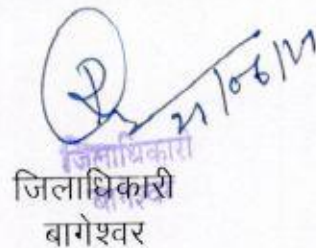 21/06/21
जिलाधिकारी
जिलाधिकारी
बागेश्वर